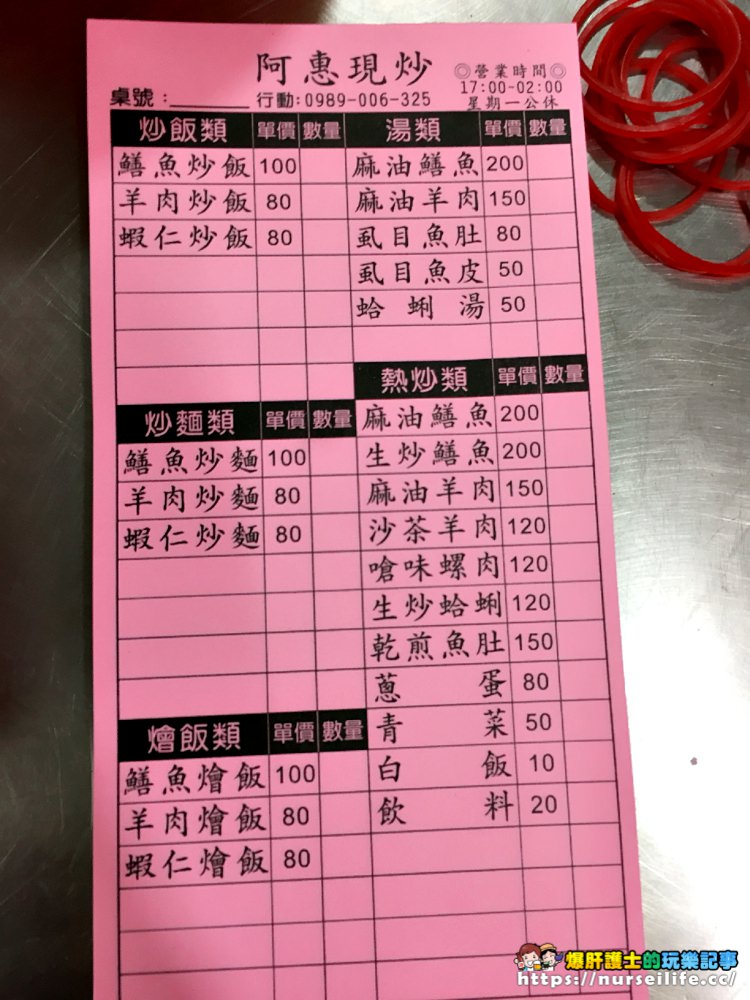 阿惠現炒
◎營業時間◎
17:00~02:00
星期一公休
桌號：
行動:0989-006-325
炒飯類 單價 數量
鱔魚炒飯 100
羊肉炒飯 80
蝦仁炒飯 80
炒麵類 單價 數量
鱔魚炒麵 100
羊肉炒麵 80
蝦仁炒麵 80
燴飯類 單價 數量
鱔魚燴飯 100
羊肉燴飯 80
蝦仁燴飯 80
湯類 單價 數量
麻油鱔魚 200
麻油羊肉 150
虱目魚肚 80
虱目魚皮 50
蛤蜊湯 50
熱炒類 單價 數量
麻油鱔魚 200
生炒鱔魚 200
麻油羊肉 150
沙茶羊肉 120
嗆味螺肉 120
生炒蛤蜊 120
乾煎魚肚 150
蔥蛋 80
青菜 50
白飯 10
飲料 20
爆肝護士的玩樂記事
https://nurseilife.cc/